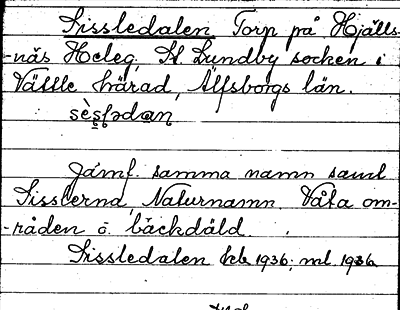 Sissledalen Torp på Hjälls-
-näs Heleg. St. Lundby socken i
Vättle härad, Älfsborgs län.
sèsļədaņ
Jämf. samma namn samt
Sisslerna, Naturnamn. Våta om-
-råden o. bäckdäld.
Sissledalen kb 1936; ml 1936